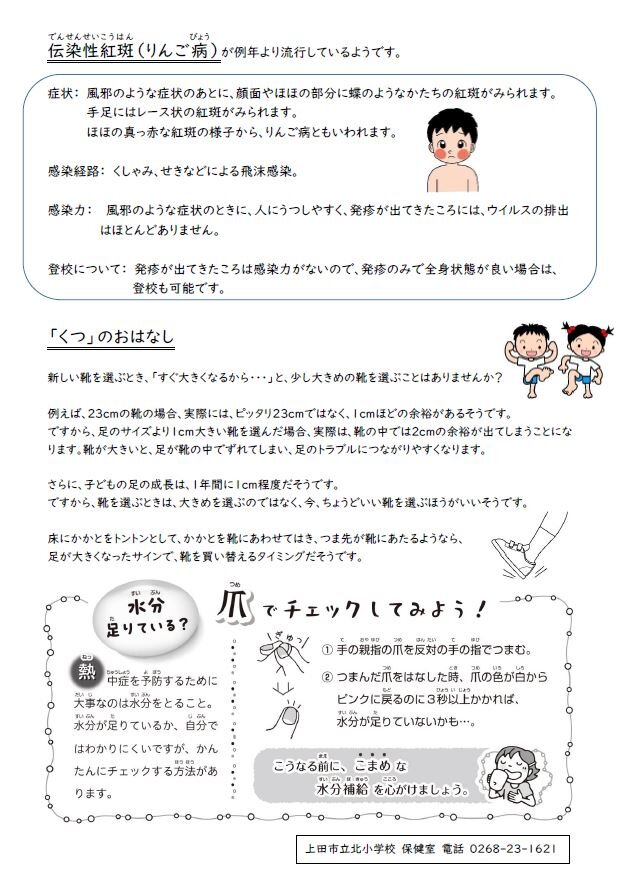 伝染性紅斑（りんご病）が例年より流行しているようです。
症状： 風邪のような症状のあとに、顔面やほほの部分に蝶のようなかたちの紅斑がみられます。
手足にはレース状の紅斑がみられます。
ほほの真っ赤な紅斑の様子から、りんご病ともいわれます。
感染経路： くしゃみ、せきなどによる飛沫感染。
感染力： 風邪のような症状のときに、人にうつしやすく、発疹が出てきたころには、ウイルスの排出
はほとんどありません。
登校について： 発疹が出てきたころは感染力がないので、発疹のみで全身状態が良い場合は、
登校も可能です。
「くつ」のおはなし
新しい靴を選ぶとき、「すぐ大きくなるから・・・」と、少し大きめの靴を選ぶことはありませんか？
例えば、23cmの靴の場合、実際には、ピッタリ23cmではなく、1cmほどの余裕があるそうです。
ですから、足のサイズより1cm大きい靴を選んだ場合、実際は、靴の中では2cmの余裕が出てしまうことにな
ります。靴が大きいと、足が靴の中でずれてしまい、足のトラブルにつながりやすくなります。
さらに、子どもの足の成長は、1年間に1cm程度だそうです。
ですから、靴を選ぶときは、大きめを選ぶのではなく、今、ちょうどいい靴を選ぶほうがいいそうです。
床にかかとをトントンとして、かかとを靴にあわせてはき、つま先が靴にあたるようなら、
足が大きくなったサインで、靴を買い替えるタイミングだそうです。
水分
足りている？
爪でチェックしてみよう！
熱中症を予防するために
大事なのは水分をとること。
水分が足りているか、自分で
はわかりにくいですが、かん
たんにチェックする方法があ
ります。
ぎゅっ
① 手の親指の爪を反対の手の指でつまむ。
② つまんだ爪をはなした時、爪の色が白から
ピンクに戻るのに3秒以上かかれば、
水分が足りていないかも…。
こうなる前に、こまめな
水分補給を心がけましょう。
上田市立北小学校 保健室 電話 0268-23-1621